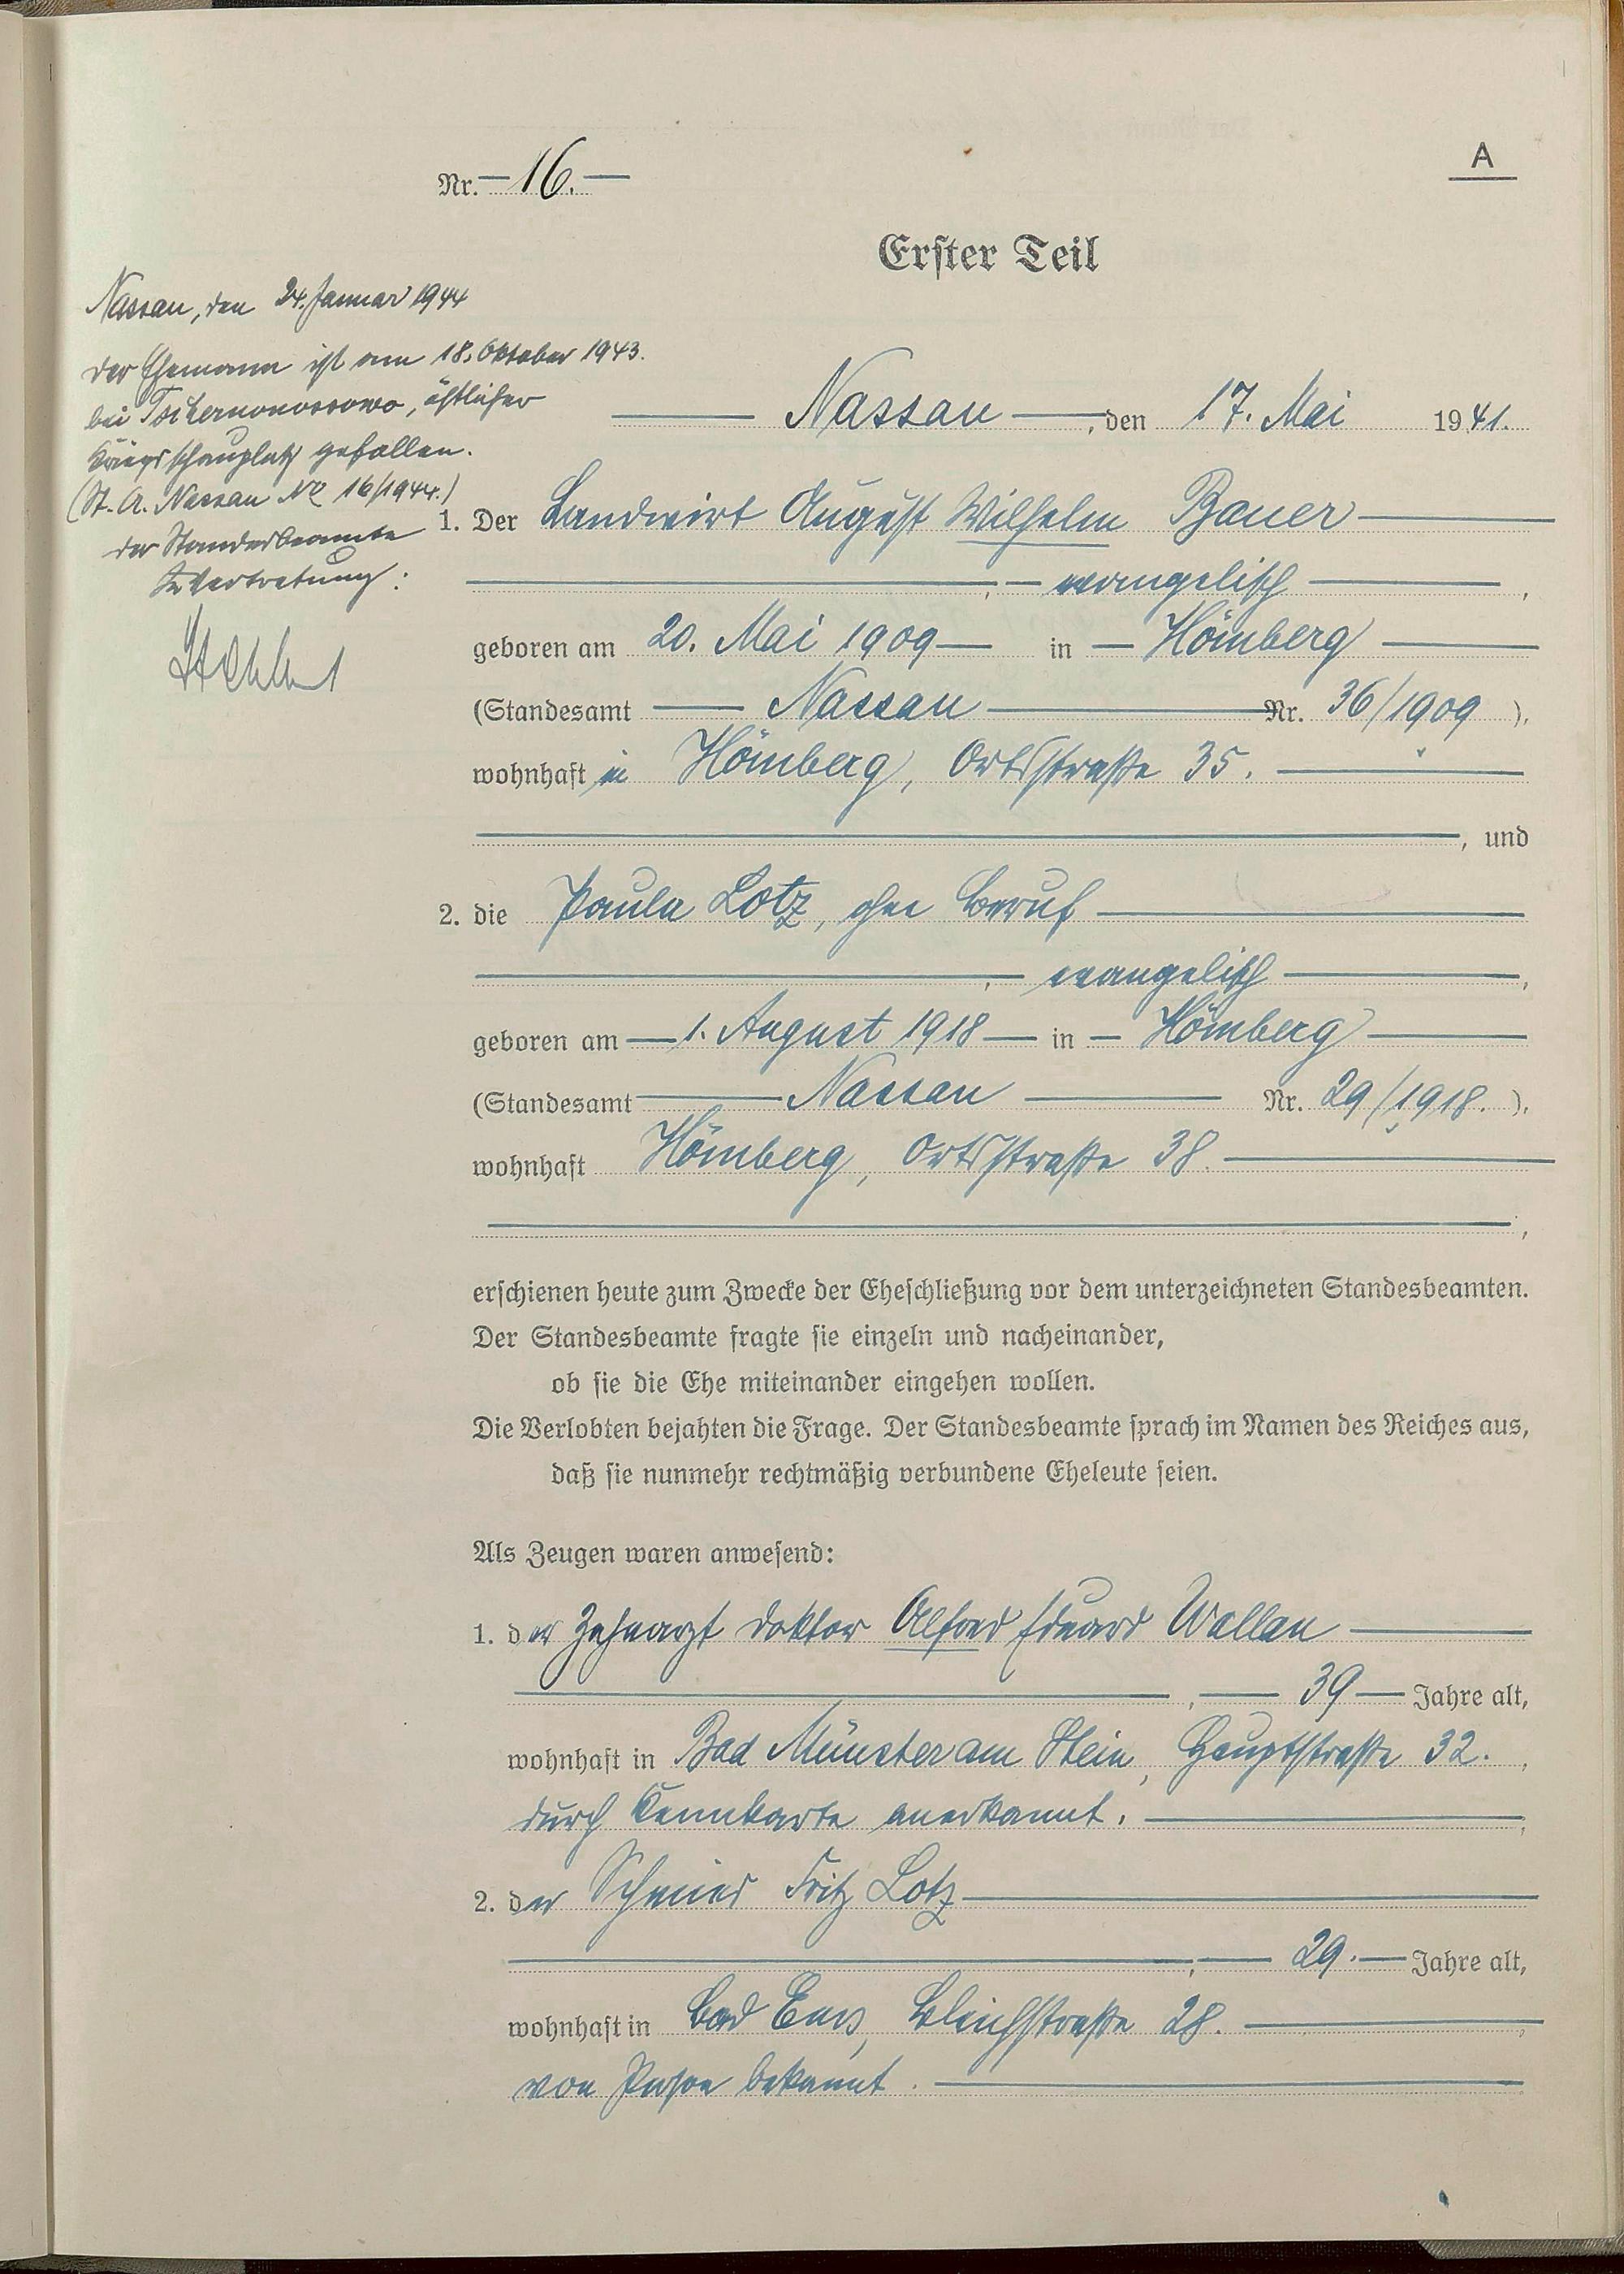 A
Nr. 16.
Erster Teil
Nassau, den 24. Januar 1944
der Ehemann ist am 18. Oktober 1943.
bei Tschernonossowo, östlicher
Kriegsschauplatz gefallen.
(St. A. Nassau No 16/1944.)
der Standesbeamte
In Vertretung:
Nassau, den 17. Mai 1941.
1. Der Landwirt August Wilhelm Bauer
, evangelisch,
geboren am 20. Mai 1909 in Hömberg
(Standesamt Nassau Nr. 36/1909),
wohnhaft in Hömberg, Ortsstraße 35.
, und
2. die Paula Lotz, ohne Beruf
, evangelisch,
geboren am 1. August 1918 in Hömberg
(Standesamt Nassau Nr. 29/1918.),
wohnhaft Hömberg, Ortsstraße 38.
,
erschienen heute zum Zwecke der Eheschließung vor dem unterzeichneten Standesbeamten.
Der Standesbeamte fragte sie einzeln und nacheinander,
ob sie die Ehe miteinander eingehen wollen.
Die Verlobten bejahten die Frage. Der Standesbeamte sprach im Namen des Reiches aus,
daß sie nunmehr rechtmäßig verbundene Eheleute seien.
Als Zeugen waren anwesend:
1. der Zahnarzt Doktor Alfred Eduard Wallau
, 39 Jahre alt,
wohnhaft in Bad Münster am Stein, Hauptstraße 32.,
durch Kennkarte anerkannt.,
2. der Schmied Fritz Lotz
, 29. Jahre alt,
wohnhaft in Bad Ems, Bleichstraße 28.,
von Person bekannt.